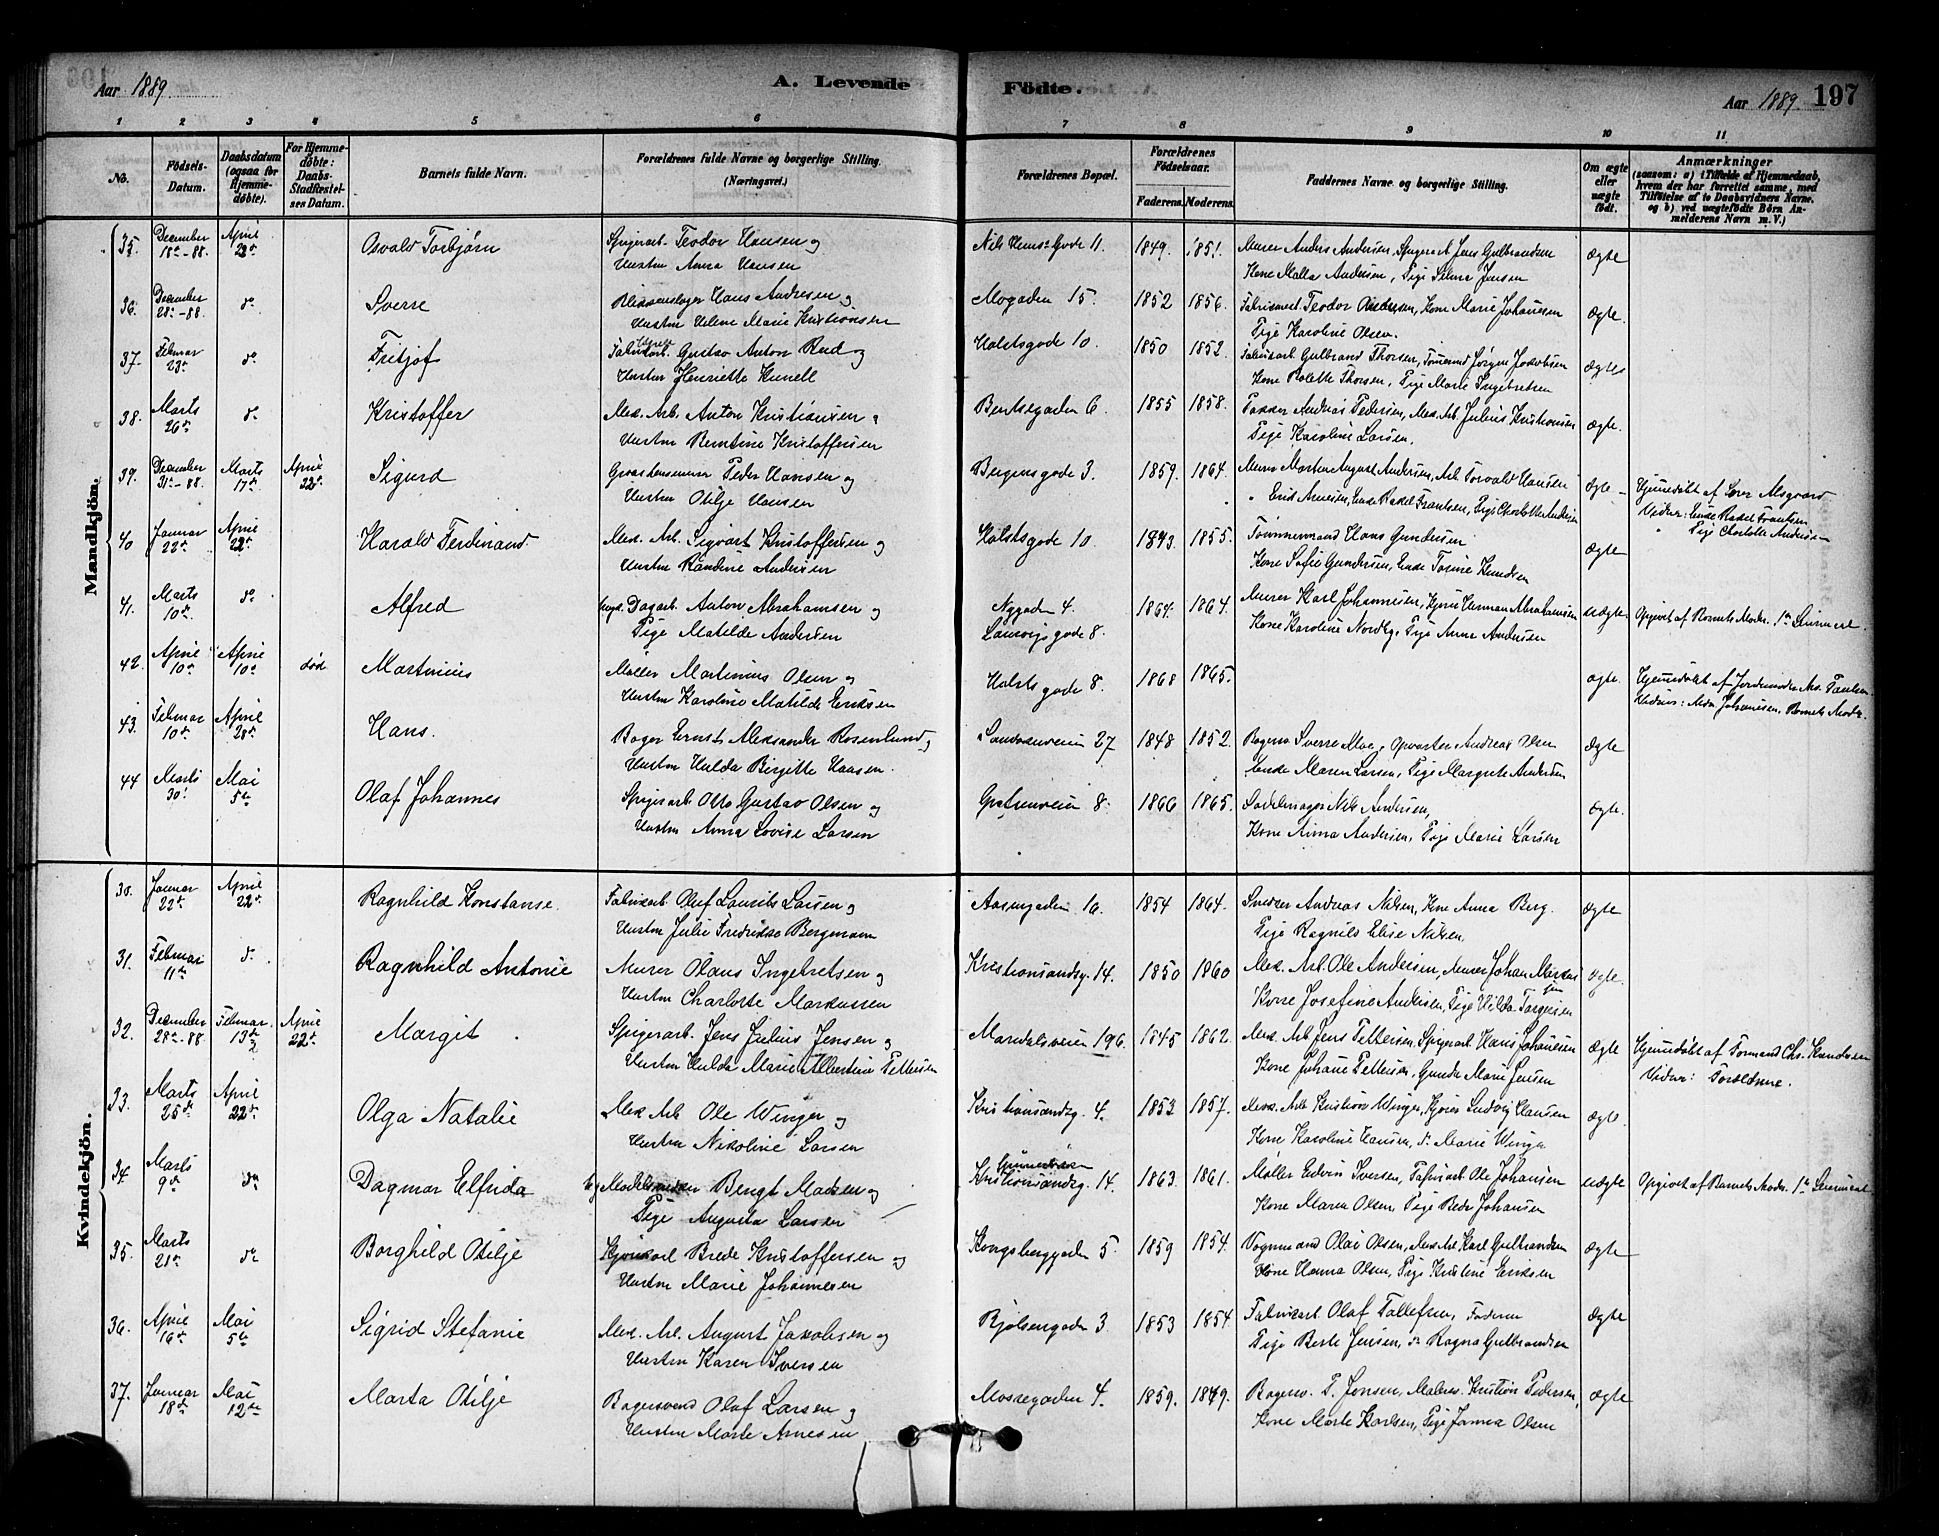 Aar 1889.
A. Levende Födte.
Aar 1889. 197
1 2 3 4 5 6 7 8 9 10 11
No.
Födsels-Datum.
Daabsdatum (ogsaa for Hjemme-döbte).
For Hjemme-döbte: Daabs-Stadfæstel-ses Datum.
Barnets fulde Navn.
Forældrenes fulde Navne og borgerlige Stilling. (Næringsvei.)
Forældrenes Bopæl.
Forældrenes Födselsaar.
Faderens. Moderens.
Faddernes Navne og borgerlige Stilling.
Om ægte eller uægte født.
Anmærkninger
(saasom: a) i Tilfælde af Hjemmedaab, hvem der har forrettet samme, med Tilføielse af to Daabsvidners Navne. og b) ved uægtefödte Börn Anmelderens Navn m. V.)
Mandkjön.
35. December 18de-88. April 22de Osvald Torbjørn Spigerarb. Teodor Hansen og Nils Huus' Gade 11. 1849. 1851. Murer Anders Andersen, Spigerarb. Jens Gulbrandsen ægte
Hustru Anna Hansen Kone Malla Andersen, Pige Selma Jensen
36. December 28de-88. do Sverre Blikkenslager Hans Andresen og Mogaden 15. 1852 1856. Fabrikarb. Teodor Andersen, Kone Marie Johansen ægte.
Hustru Helene Marie Kristiansen Pige Karoline Olsen.
37. Februar 23de do Fritjof Fabrikarb. Gustav Anton Rud og Holstsgade 10. 1850 1852. Fabrikarb. Gulbrand Thorsen, Tømmerm. Jørgen Jakobsen ægte
Hustru Henriette Kunell Kone Bolette Thorsen, Pige Marie Ingebretsen
38. Marts 26de do Kristoffer Mek. Arb. Anton Kristiansen o Bentsegaden 6. 1855 1858. Pakker Andreas Pedersen, Mek. Arb. Julius Kristiansen ægte.
Hustru Berntine Kristoffersen Pige Karoline Larsen.
39. December 31te-88. Marts 17de April 22de Sigurd Peder Hansen og Bergensgade 3. 1859. 1864. Murer Morten August Andersen, Arb. Torvald Hansen ægte Hjemmedøbt af
Hustru Otilje Hansen Enke Rakel Frantsen, Pige Charlotte Andersen Vidner: Enke Rakel Frantsen
40 Januar 22de April 22de Harald Ferdinand Mek. Arb. Sigvart Kristoffersen og Holstsgade 10. 1843. 1855. Tømmermand Hans Gundersen ægte Pige Charlotte Andersen
Hustru Randine Andersen Kone Sofie Gundersen, Enke Torine Knudsen
41. Marts 10de do Alfred Ungk. Dagarb. Anton Abrahamsen og Nygaden 4. 1864. 1864. Murer Karl Johannesen, Herman Abrahamsen uægte Opgivet af Barnets Moder. 1ste Leiermaal.
Pige Matilde Andersen Laurvigsgade 8. Kone Karoline Nordby, Pige Anne Andersen
42. April 10de April 10de død Martinius Møller Martinius Olsen og Holstsgade 8. 1868 1865. ægte. Hjemmedøbt af Jordemoder Paulsen.
Hustru Karoline Matilde Eriksen Vidner: Johannesen, Barnets Moder.
43. Februar 10de April 28de Hans. Bager Ernst Aleksander Rosenlund og Sandakerveien 27 1848 1852. Bagersv. Sverre Moe, Opvarter Andreas Olsen ægte
Hustru Hulda Birgitte Hansen. Enke Maren Larsen, Pige Margrete Andersen
44 Marts 30. Mai 5te Olaf Johannes Spigerarb. Otto Gustav Olsen og Grefsenveien 8. 1866 1865. Sadelmager Nils Andersen, ægte.
Hustru Anna Lovise Larsen Kone Anna Andersen, Pige Marie Larsen
Kvindekjön.
30. Januar 22de April 22de Ragnhild Konstanse. Fabrikarb. Oluf Laurits Larsen og Aasengaden 16. 1854 1864. Snedker Andreas Nilsen, Kone Anna Berg. ægte
Hustru Julie Fredrikke Bergmann Pige Ragnild Elise Nilsen.
31. Februar 11te do Ragnhild Antonie Murer Olaus Ingebretsen og Kristiansandsg. 14. 1850 1860 Mek. Arb. Ole Andersen, Murer Johan Markussen ægte.
Hustru Charlotte Markussen Kone Josefine Andersen, Pige Hilda Torgersen
32. December 28de-88. Februar 13de April 22de Margit Spigerarb. Jens Julius Jensen og Maridalsveien 196. 1845 1862. Mek. Arb. Jens Pettersen, Spigerarb. Hans Johansen ægte Hjemmedøbt af Formand Chr. Knudsen
Hustru Hulda Marie Albertine Pettersen Kone Johane Pettersen, Gunda Marie Jensen Vidner: Forældrene.
33. Marts 25de April 22de Olga Natalie Mek Arb. Ole Winger og Kristiansandsg. 4. 1853 1857. Mek. Arb. Kristian Winger, Kjører Ludvig Hansen ægte.
Hustru Nikoline Larsen Kone Karoline Hansen, do Marie Winger
34. Marts 9de do Dagmar Elfrida Bengt Madsen og Kristiansandsg. 14. 1863 1861. Møller Edvin Iversen, Fabrikarb. Ole Johansen uægte Opgivet af Barnets Moder. 1ste Leiermaal.
Pige Augusta Larsen Kone Maren Olsen, Pige Johansen
35. Marts 21de do Borghild Otilje Brede Kristoffersen og Kongsberggaden 5. 1859 1854. Vognmand Olai Olsen, Mek. Arb. Karl Gulbrandsen ægte
Hustru Marie Johannesen Kone Hanna Olsen, Pige Kristine Eriksen
36. April 16de Mai 5te Sigrid Stefanie Mek. Arb. August Jakobsen og Bjølsengaden 3 1853 1854. Fabrikarb. Olaf Tollefsen, Faderen ægte
Hustru Karen Iversen Pige Berte Jensen, do Ragna Gulbrandsen
37. Januar 18de Mai 12te Marta Otilje Bagersvend Olaf Larsen og Mossegaden 4. 1859. 1849. Bagersv. P. Jonsen, Malers. Kristian Pedersen, ægte
Hustru Marte Arnesen Kone Marte Karlsen, Pige Janna Olsen